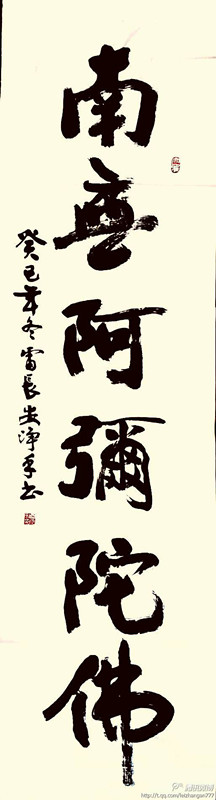 南無阿彌陀佛
癸巳年冬雷長安淨手書
http://t.qq.com/leizhangan777